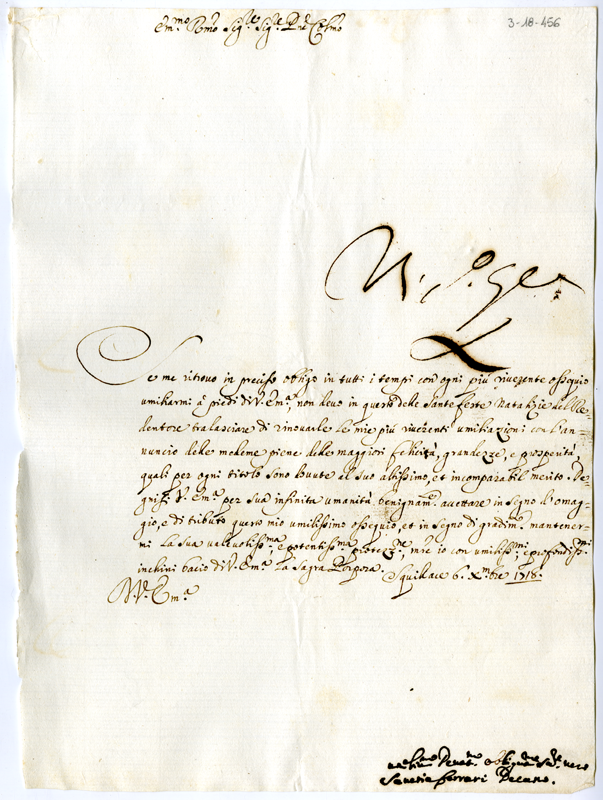 3-18-456
Em.mo Rmo Sig.re Sig.re P.ne Col.mo
Se me ritrovo in preciso obligo in tutti i tempi con ogni più riverente ossequio
umiliarmi a' piedi di V. Em.a, non devo in questo delle Sante feste Natalizie del Re=
dentore tralasciare di rinovarle le mie più riverenti umiliazioni con l'an=
nuncio delle medeme piene delle maggiori felicità, grandezze, e prosperità,
quali per ogni titolo sono dovute al suo altissimo, et incomparabil merito. De=
gnisi V. Em.a per sua infinita umanità benignam.e accettare in segno d'omag=
gio, e di tributo questo mio umilissimo ossequio, et in segno di gradim.o mantener=
mi la sua validissi.ma, e potentiss.ma protez.ne, m.re io con umiliss.mi, e profondiss.mi
inchini bacio di V. Em.a la Sagra Porpora. Squillace 6. X.mbre 1718.
Di V. Em.a
Devot.mo Obblig.mo vero
Ferrari Decano.